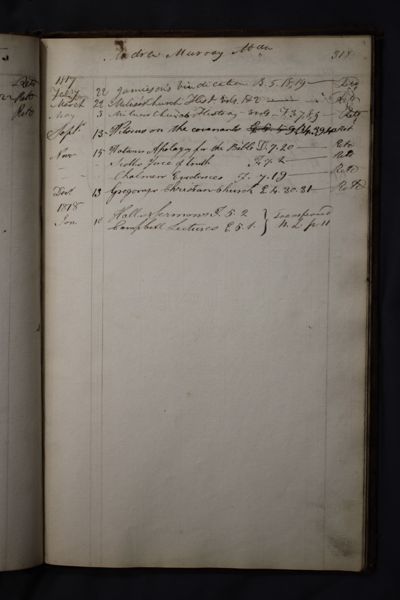 Andrew Murray 318
1817
Feby 22 Jamiesons Vindication B.5.18,19 Ret
March 22 Milns Church Hist vol 1 & 2 Ret
May 3 Milns Church History vol F.3.7,8,9 Ret
Sept. 13 on the covenants Ret
Nov 15 Watsons Apology for the Bible F.7.20 Ret
Scotts Force of truth F.7.2 Ret
Chalmers Evidences F.7.19 Ret
Decr 13 Gregorys Christian Church E.4.30.31 Retd
1818
Jan 10 Halls Sermons F.5.2
Campbell Lectures E.5.1. transferred